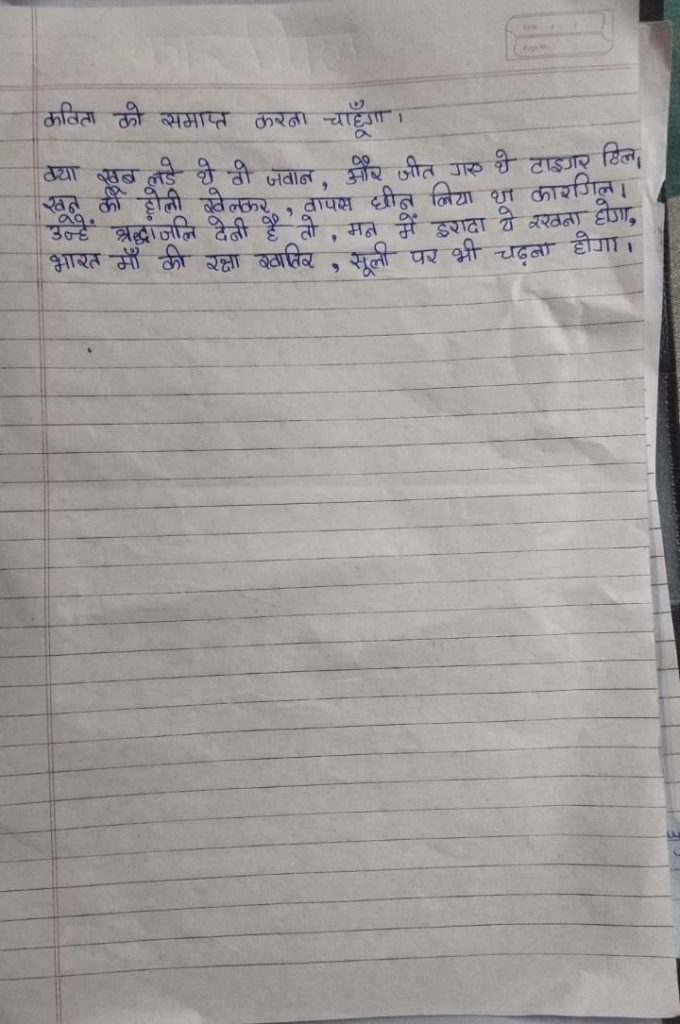 Date
Page No.
कविता को समाप्त करना चाहूँगा।
क्या खूब लड़े थे वो जवान, और जीत गए थे टाइगर हिल।
खून की होली खेलकर, वापस छीन लिया था कारगिल।
उन्हें श्रद्धांजलि देनी है तो, मन में इरादा ये रखना होगा,
भारत माँ की रक्षा खातिर, सूली पर भी चढ़ना होगा।